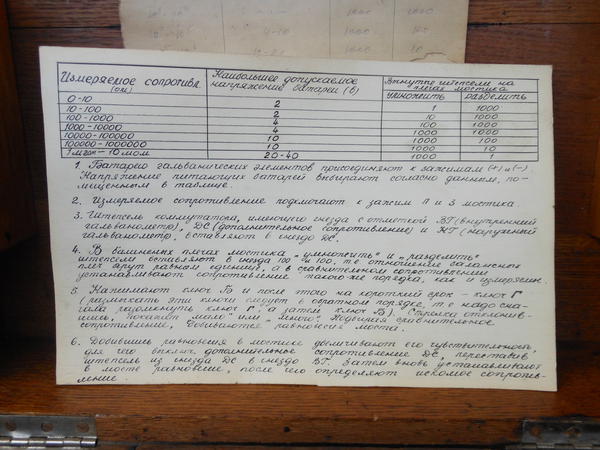 10⁴-10⁵ 1000 1000
10⁵ 4-10 1000 100
10-20 1000 10
Измеряемое сопротивл. (ом) Наибольшее допускаемое напряжение батареи (в) Воткнутые штепсели на плечах мостика
умножить разделить
0-10 2 1 1000
10-100 2 10 1000
100-1000 4 100 1000
1000-10000 4 1000 1000
10000-100000 10 1000 100
100000-1000000 10 1000 10
1 мгом-10 мом 20-40 1000 1
1. Батарею гальванических элементов присоединяют к зажимам (+) и (-)
Напряжение питающих батарей выбирают согласно данным, по-
мещенным в таблице.
2. Измеряемое сопротивление подключают к зажим Л и З мостика.
3. Штепсель коммутатора, имеющего гнезда с отметкой ВГ (внутренний
гальванометр), ДС (дополнительное сопротивление) и НГ (наружный
гальванометр, вставляют в гнездо ДС.
4. В балансных плечах мостика „умножить" и „разделить"
штепсели вставляют в гнезда 100 и 100, т.е отношение балансных
плеч берут равным единице, а в сравнительном сопротивлении
устанавливают сопротивление такого же порядка, как и измеряем.
5. Нажимают ключ Б и после того на короткий срок - ключ Г
(размыкать эти ключи следует в обратном порядке, т.е надо сна-
чала разомкнуть ключ Г, а затем ключ Б). Стрелка отклонив-
шись, покажет „мало" или „много". Подбирая сравнительное
сопротивление, добиваются равновесия моста.
6. Добившись равновесия в мостике увеличивают его чувствительность
для чего выключ. дополнительное сопротивление ДС, переставив
штепсель из гнезда ДС в гнездо ВГ. Затем вновь устанавливают
в мосте равновесие, после чего определяют искомое сопротив-
ление.